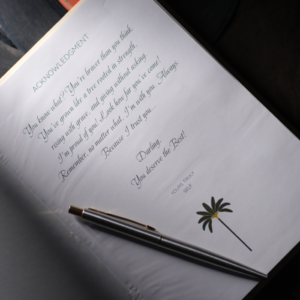 ACKNOWLEDGMENT
You know what? You're braver than you think
You've grown like a tree rooted in strength,
rising with grace, and giving without asking.
I'm proud of you! Look how far you've come!
Remember, no matter what, I'm with you. Always.
Because I trust you.
Darling,
You deserve the Best!
YOURS TRULY
SELF